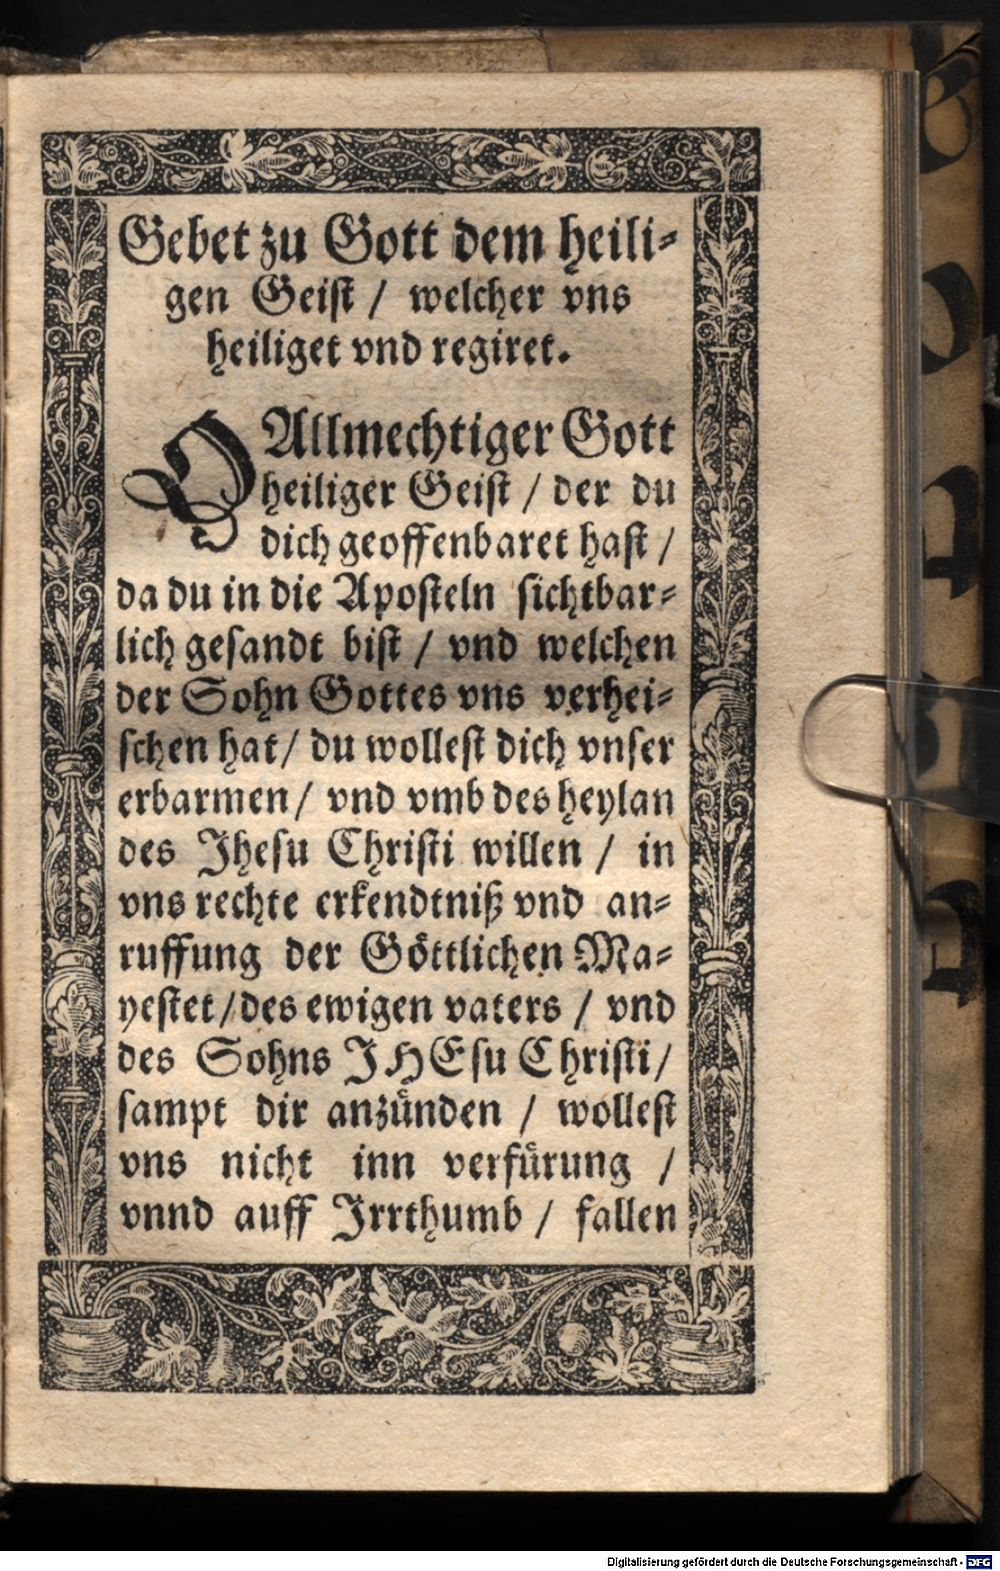 Gebet zu Gott dem heili⸗
gen Geiſt / welcher vns
heiliget vnd regiret.
O Allmechtiger Gott
heiliger Geiſt / der du
dich geoffenbaret haſt /
da du in die Apoſteln ſichtbar⸗
lich geſandt biſt / vnd welchen
der Sohn Gottes vns verhei⸗
ſchen hat / du wolleſt dich vnſer
erbarmen / vnd vmb des heylan
des Jheſu Chriſti willen / in
vns rechte erkendtniß vnd an⸗
ruffung der Göttlichen Ma⸗
yeſtet / des ewigen vaters / vnd
des Sohns JHEſu Chriſti /
ſampt dir anzünden / wolleſt
vns nicht inn verfürung /
vnnd auff Jrrthumb / fallen
Digitalisierung gefördert durch die Deutsche Forschungsgemeinschaft - DFG